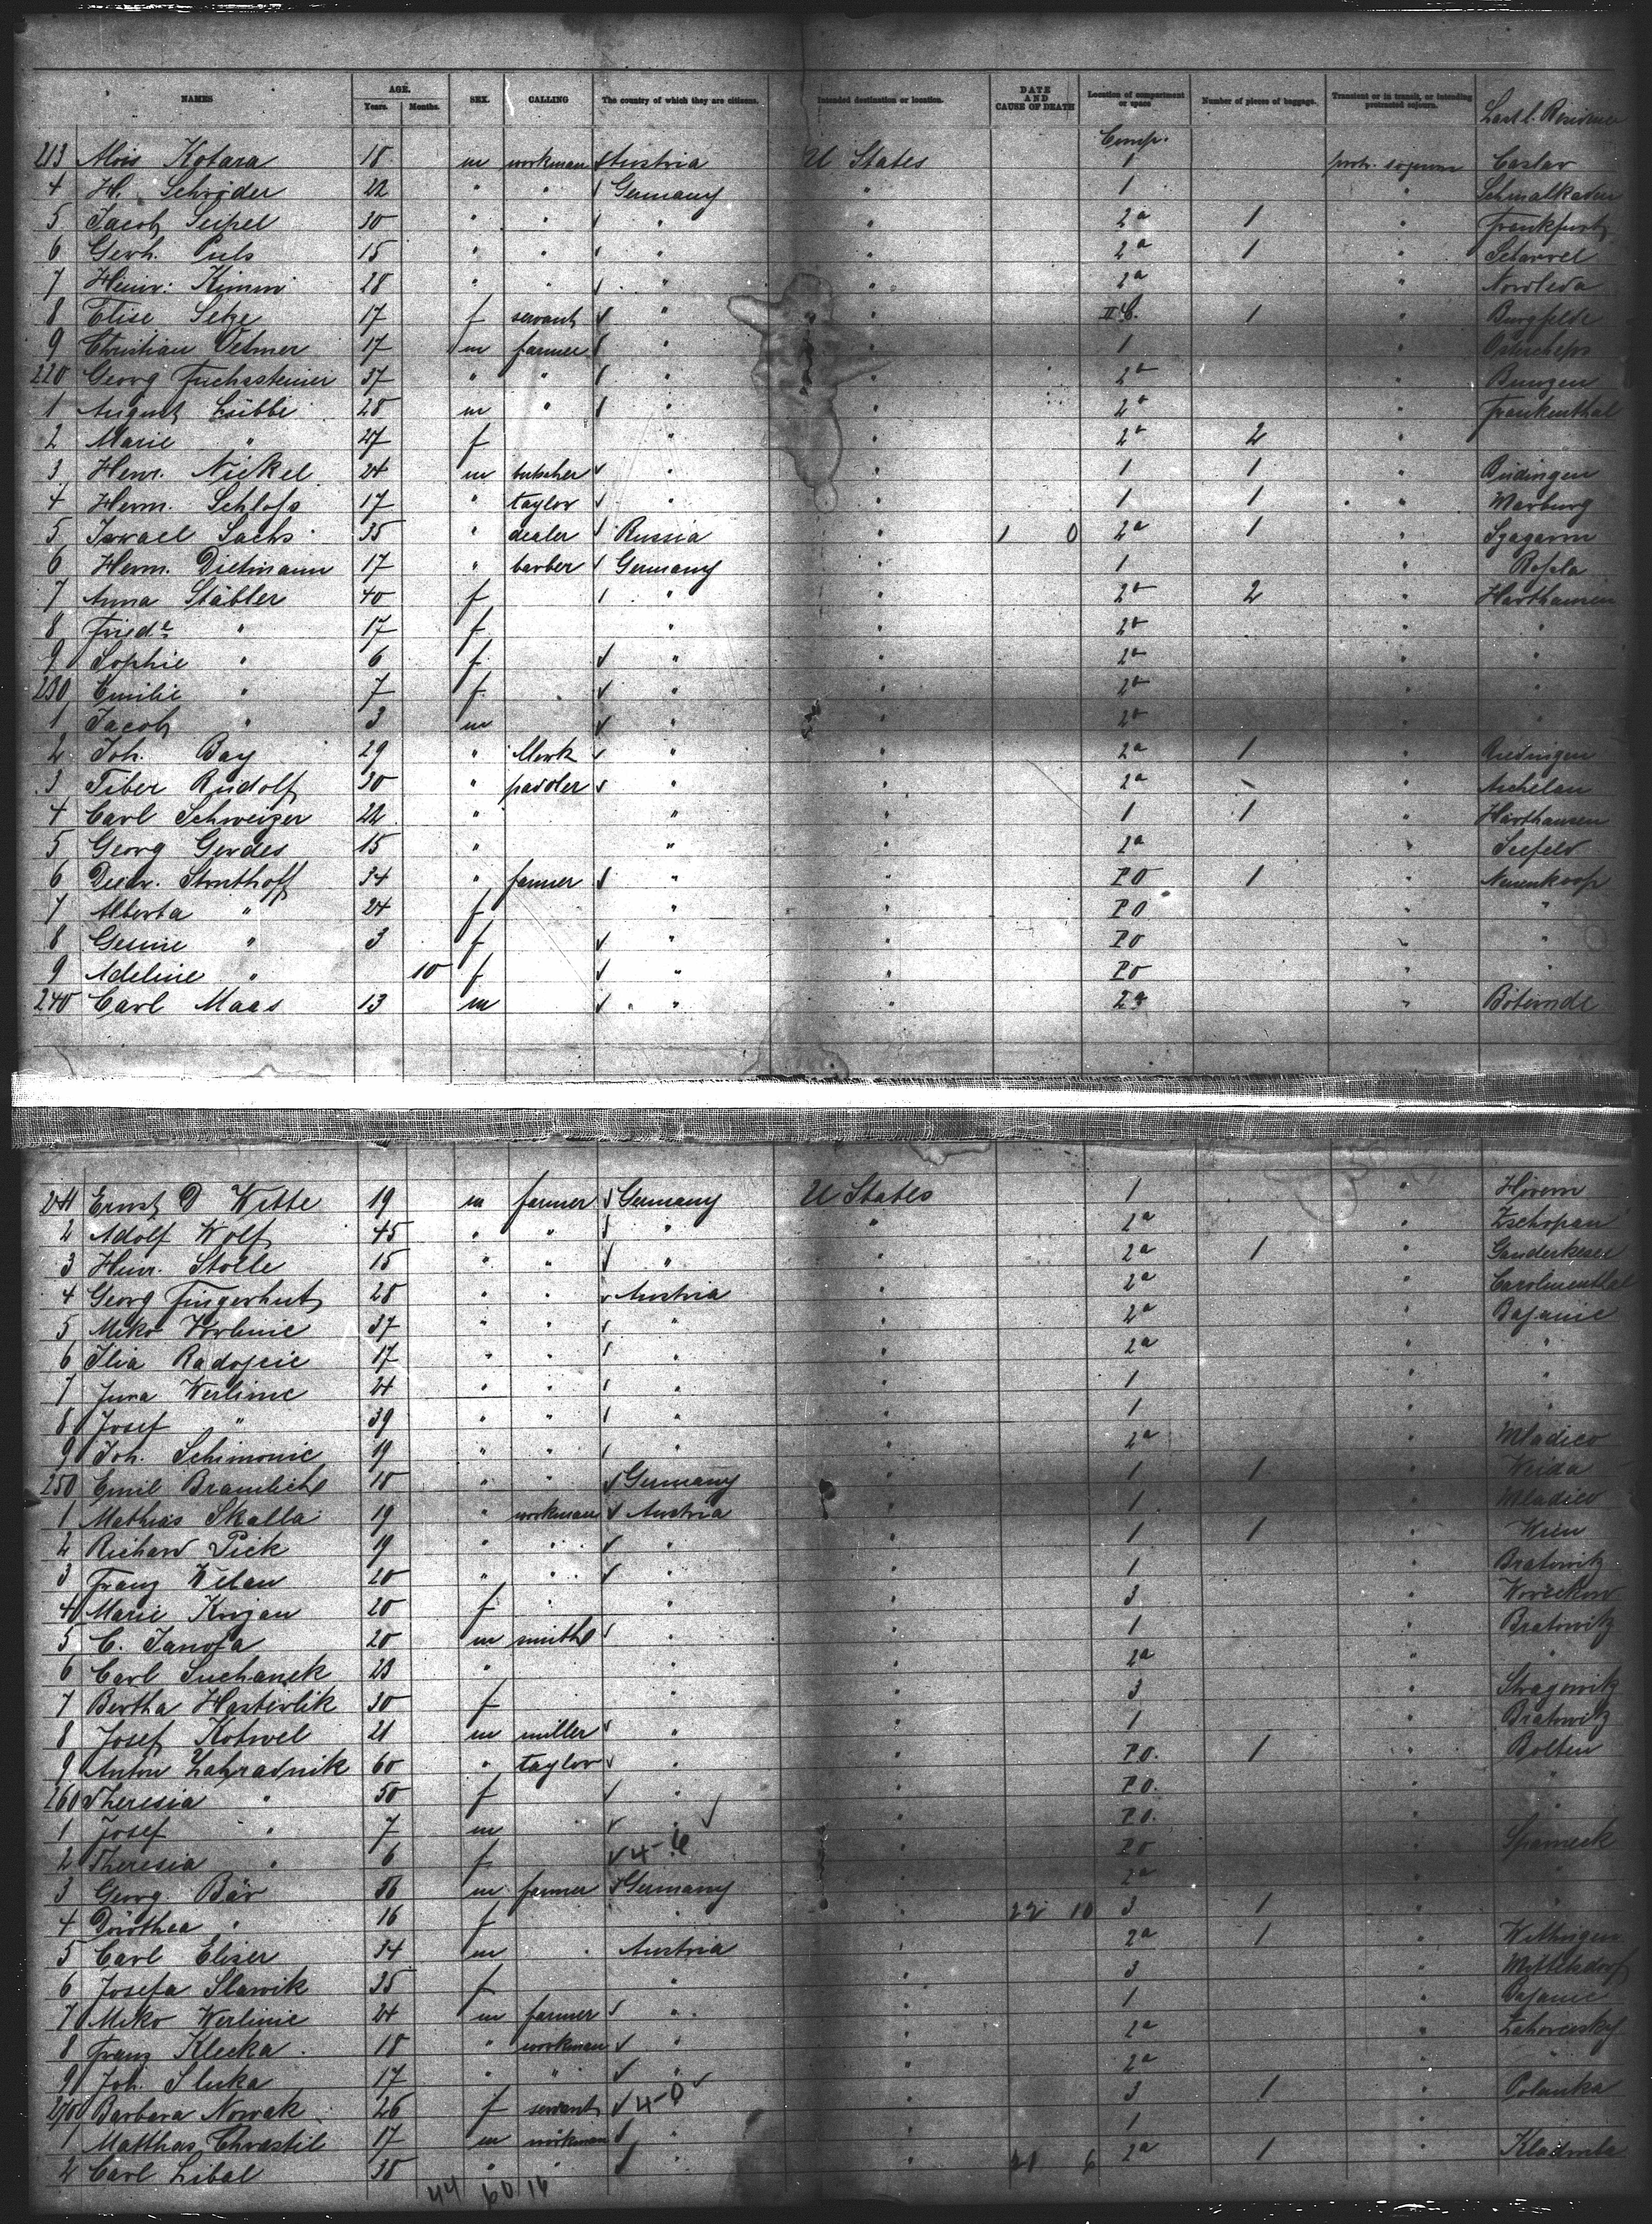 NAMES AGE. Years. Months. SEX. CALLING The country of which they are citizens. Intended destination or location. DATE AND CAUSE OF DEATH Location of compartment or space Number of pieces of baggage. Transient or in transit, or intending protracted sojourn. Last l. Residence
Comp.
213 Alois Kotara 18 m workman Austria U States 1 protr. sojourn Caslav
4 H. Schröder 22 " " Germany " 1 "
5 Jacob Seipel 30 " " " " 2a 1 " Frankfurt
6 Gerh. Puls 15 " " " " 2a 1 " Scharrel
7 Heinr. Kimm 28 " " " " 2a "
8 Elise Setze 17 f servant " " II C. 1 " Burgfelde
9 Christian Oetmer 17 m farmer " " 1 " Osterscheps
220 Georg Fuchssteiner 37 " " " " 2a "
1 August Lübbe 28 m " " " 2a " Frankenthal
2 Marie " 27 f " " 2a 2 "
3 Henr. Nickel 24 m butscher " " 1 1 " Büdingen
4 Herm. Schloss 17 " taylor " " 1 1 " Marburg
5 Israel Sachs 35 " dealer Russia " 1 0 2a 1 " Szagarrn
6 Herm. Dietmann 17 " barber Germany " 1 " Rossla
7 Anna Stäbler 40 f " " 2a 2 " Harthausen
8 Friede " 17 f " " 2a " "
9 Sophie " 6 f " " 2a " "
230 Emilie " 7 f " " 2a " "
1 Jacob " 3 m " " 2a " "
2 Joh. Bay 29 " Clerk " " 2a 1 " Riedingen
3 Tiber Rudolf 30 " paddler " " 2a " Aichelau
4 Carl Schweizer 22 " " " 1 1 " Harthausen
5 Georg Gerdes 15 " " " 2a " Seefeld
6 Diedr. Struthoff 34 " farmer " " P O 1 " Neuenkoop
7 Alberta " 24 f " " P O " "
8 Gesine " 3 f " " P O " "
9 Adeline " 10 f " " P O " "
240 Carl Maas 13 m " " 2a "
241 Ernst D Witte 19 m farmer Germany U States 1 "
2 Adolf Wolf 45 " " " " 2a " Zschopau
3 Heinr. Stolle 15 " " " " 2a 1 " Ganderkesee
4 Georg Fingerhut 28 " " Austria " 2a " Carolinenthal
5 Miko Vrlinic 37 " " " " 2a " Bojanic
6 Ilia Radojcic 17 " " " " 2a " "
7 Jura Werlinic 24 " " " " 1 " "
8 Josef " 39 " " " " 1 " "
9 Joh. Schimonic 19 " " " " 2a " Mladico
250 Emil Bräunlich 18 " " Germany " 1 1 " Weida
1 Mathias Skalla 19 " workman Austria " 1 " Mladico
2 Richard Pick 19 " " " " 1 1 " Wien
3 Franz Welan 20 " " " " 1 " Bratowitz
4 Marie Krijan 20 f " " " 3 "
5 C. Janota 20 m smith " " 1 " Bratowitz
6 Carl Suchanek 23 " " " 2a " "
7 Bertha Hasterlik 30 f " " 3 "
8 Josef Kotwel 21 m miller " " 1 " Bratowitz
9 Anton Zahradnik 60 " taylor " " P.O. 1 " Bolten
260 Theresia " 50 f " " P O. " "
1 Josef " 7 m " " P.O. "
2 Theresia " 6 f 4-6 " P O "
3 Georg Bär 58 m farmer Germany " 2a " Sparneck
4 Dorothea " 16 f " " 22 10 3 1 " "
5 Carl Eliser 34 m " Austria " 2a 1 "
6 Josefa Slawik 35 f " " 3 " Mittelsdorf
7 Miko Werlinic 24 m farmer " " 1 " Bojanic
8 Franz Klecka 18 " workman " " 2a "
9 Joh. Sluka 17 " " " " 2a " "
270 Barbara Nowak 26 f servant 4-0 " 3 1 " Polanka
1 Matthas Chrastil 17 m workman " " 1 "
2 Carl Libal 38 " " " " 21 6 2a 1 " Kladruba
44 60 16